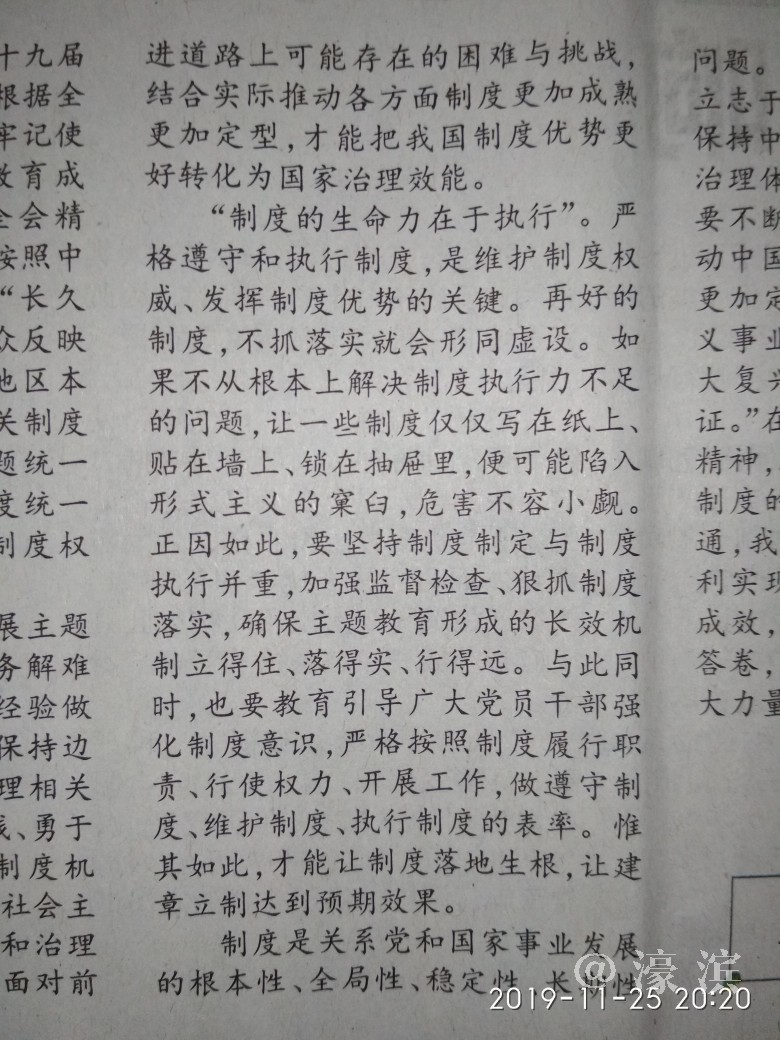 十九届
根据全
牢记使
教育成
全会精
按照中
“长久
众反映
地区本
关制度
题统一
度统一
制度权
展主题
务解难
经验做
保持边
理相关
、勇于
制度机
社会主
和治理
面对前
进道路上可能存在的困难与挑战，
结合实际推动各方面制度更加成熟
更加定型，才能把我国制度优势更
好转化为国家治理效能。
“制度的生命力在于执行”。严
格遵守和执行制度，是维护制度权
威、发挥制度优势的关键。再好的
制度，不抓落实就会形同虚设。如
果不从根本上解决制度执行力不足
的问题，让一些制度仅仅写在纸上、
贴在墙上、锁在抽屉里，便可能陷入
形式主义的窠臼，危害不容小觑。
正因如此，要坚持制度制定与制度
执行并重，加强监督检查、狠抓制度
落实，确保主题教育形成的长效机
制立得住、落得实、行得远。与此同
时，也要教育引导广大党员干部强
化制度意识，严格按照制度履行职
责、行使权力、开展工作，做遵守制
度、维护制度、执行制度的表率。惟
其如此，才能让制度落地生根，让建
章立制达到预期效果。
制度是关系党和国家事业发展
的根本性、全局性、稳定性、长期性
问题。
立志于
保持中
治理体
要不断
动中国
更加定
义事业
大复兴
证。”在
精神，
制度的
通，我
利实现
成效，
答卷，
大力量
@濠滨
2019-11-25 20:20